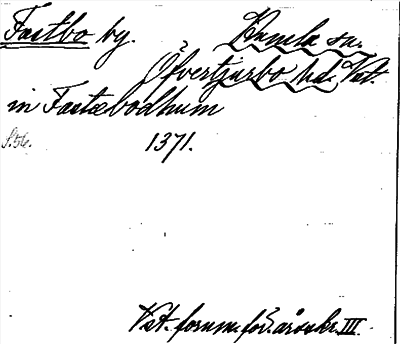 Fastbo by. Kumla sn.
Övertjurbo hd. Vst.
in Fastæbodhum
S. 56. 1371.
Vst. fornm. för. årsskr. III